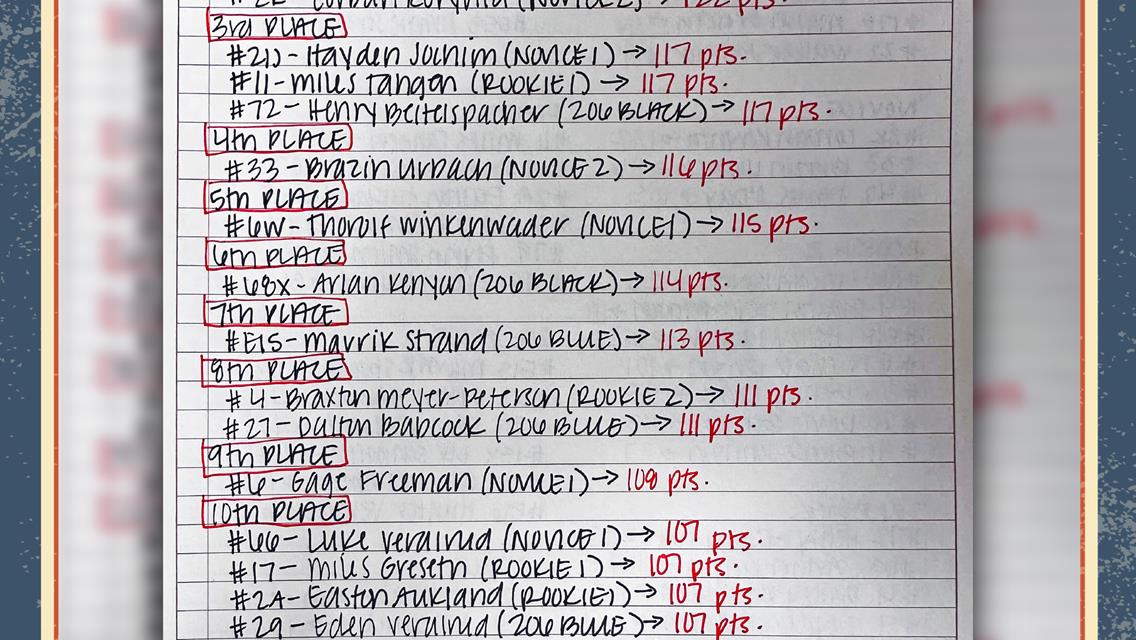 3rd PLACE
#2D- Hayden Jochim (NOVICE 1) → 117 pts.
#11- Miles Tangen (ROOKIE 1) → 117 pts.
#72- Henry Beitelspacher (206 BLACK) → 117 pts.
4th PLACE
#33- Brazin Urbach (NOVICE 2) → 116 pts.
5th PLACE
#6W- Thorolf Winkenwader (NOVICE 1) → 115 pts.
6th PLACE
#68X- Arian Kenyon (206 BLACK) → 114 pts.
7th PLACE
#E15- Mavrik Strand (206 BLUE) → 113 pts.
8th PLACE
#4- Braxton Meyer-Peterson (ROOKIE 2) → 111 pts.
#27- Dalton Babcock (206 BLUE) → 111 pts.
9th PLACE
#6- Gage Freeman (NOVICE 1) → 108 pts.
10th PLACE
#66- Luke (NOVICE 1) → 107 pts.
#17- Miles Greseth (ROOKIE 1) → 107 pts.
#2A- Easton Aukland (ROOKIE 1) → 107 pts.
#29- Eden (206 BLUE) → 107 pts.